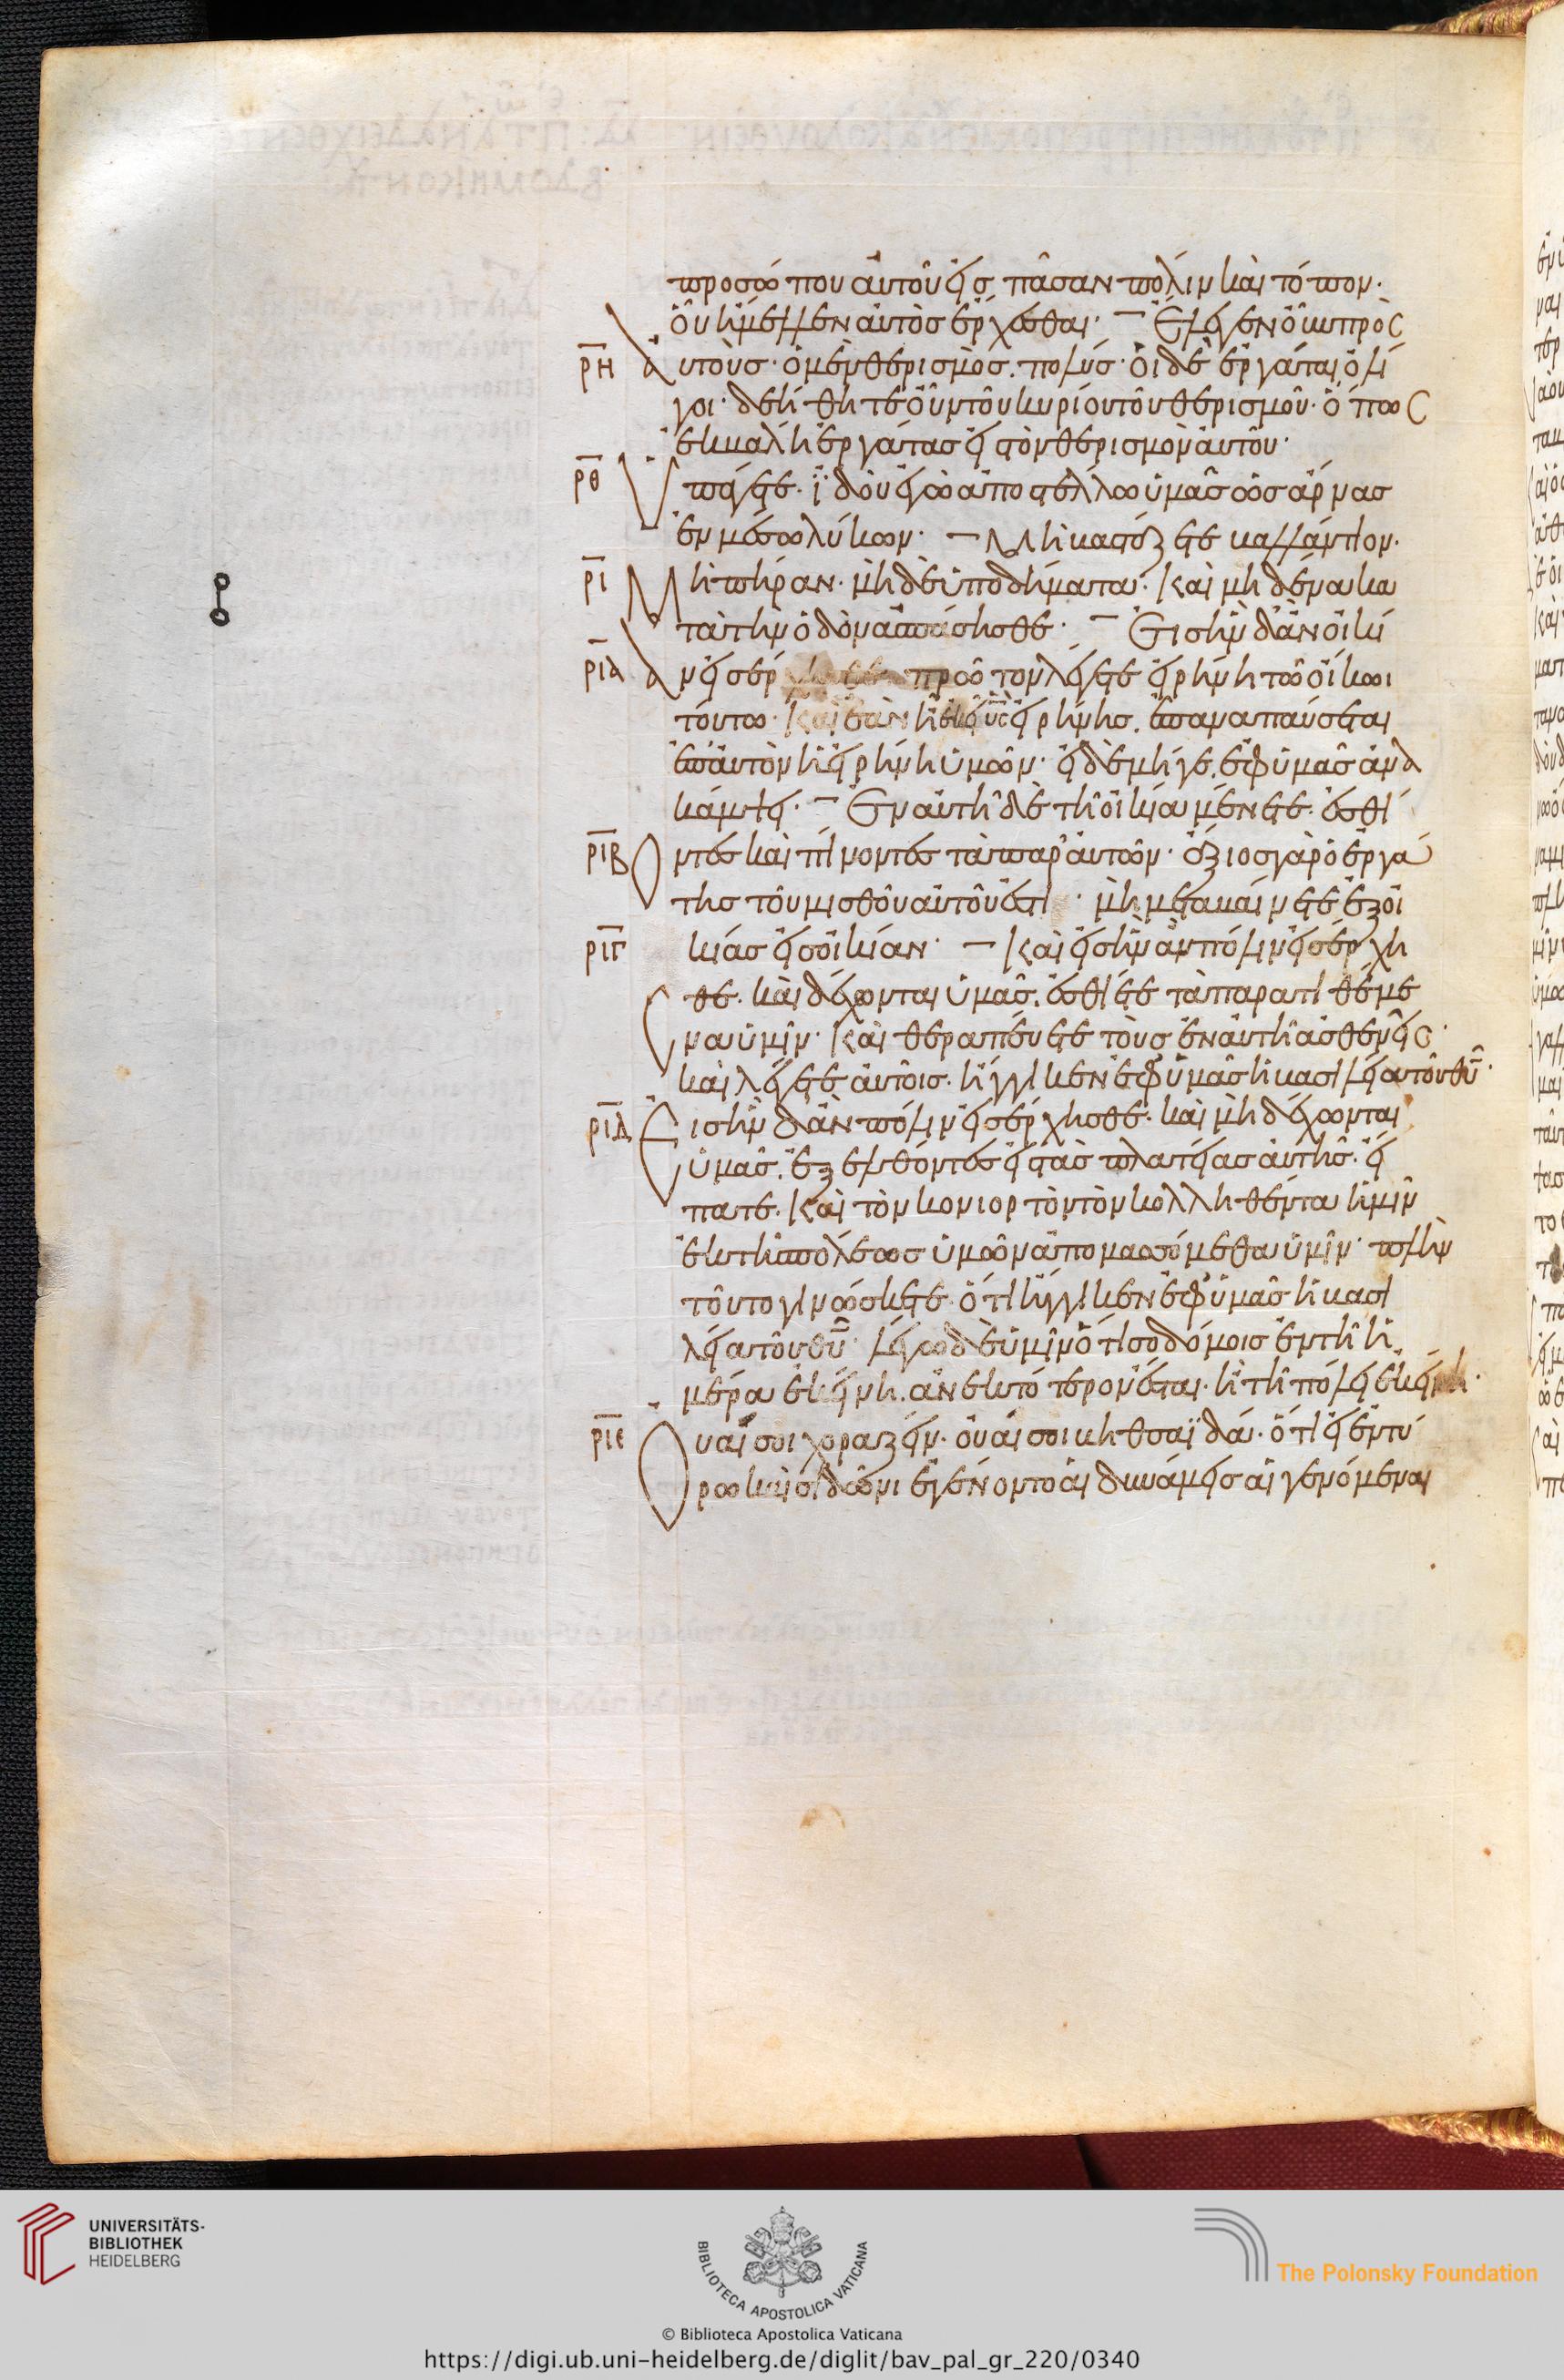 προσώπου αὐτοῦ εἰς πᾶσαν πόλιν καὶ τόπον·
οὗ ἤμελλεν αὐτὸς ἔρχεσθαι· Ἔλεγεν οὖν πρὸς
ρη αὐτοὺς· ὁ μὲν θερισμὸς πολύς· οἱ δὲ ἐργάται ὀλί
γοι· δεήθητε οὖν τοῦ κυρίου τοῦ θερισμοῦ· ὅπως
ἐκβάλη ἐργάτας εἰς τὸν θερισμὸν αὐτοῦ·
ρθ Ὑπάγετε· ἰδοὺ ἐγὼ ἀποστέλλω ὑμᾶς ὡς ἄρνας
ἐν μέσω λύκων· Μὴ βαστάζετε βαλλάντιον·
ρι Μὴ πήραν· μὴδὲ ὑποδήματα· Καὶ μηδένα κα
τὰ τὴν ὁδὸν ἀσπάσησθε· Εἰς ἣν δ' ἂν οἰκί
ρια αν εἰσέρ πρῶτον λέγετε εἰρήνη τῶ οἴκωι
τούτω· Καὶ ἐὰν ἦ ἐκεῖ υἱὸς εἰρήνης· ἐπαναπαύσεται
ἐπ' αὐτὸν ἡ εἰρήνη ὑμῶν· εἰ δὲ μήγε· ἐφ' ὑμᾶς ἀνα
κάμψει· Ἐν αὐτῆ δὲ τῆ οἰκία μένετε· ἐσθί
ριβ οντες καὶ πίνοντες τὰ παρ' αὐτῶν· ἄξιος γὰρ ὁ ἐργά
της τοῦ μισθοῦ αὐτοῦ ἐστι· μὴ μεταβαίνετε ἐξ οἰ
ριγ κίας εἰς οἰκίαν· Καὶ εἰς ἣν ἂν πόλιν εἰσέρχη
σθε· καὶ δέχονται ὑμᾶς· ἐσθίετε τὰ παρατιθέμε
να ὑμῖν· Καὶ θεραπεύετε τοὺς ἐν αὐτῆ ἀσθενεῖς·
καὶ λέγετε αὐτοῖς· ἤγγικεν ἐφ' ὑμᾶς ἡ βασιλεία τοῦ θυ·
ριδ Εἰς ἣν δ' ἂν πόλιν εἰσέρχησθε· καὶ μὴ δέχωνται
ὑμᾶς· ἐξελθόντες εἰς τὰς πλατείας αὐτῆς· εἴ
πατε· Καὶ τὸν κονιορτὸν τὸν κολληθέντα ἡμῖν
ἐκ τῆς πόλεως ὑμῶν ἀπομασσόμεθα ὑμῖν· πλὴν
τοῦτο γινώσκετε· ὅτι ἤγγικεν ἐφ' ὑμᾶς ἡ βασι
λεία τοῦ θυ· λέγω δὲ ὑμῖν ὅτι σοδόμοις ἐν τῆ ἡ
μέρα ἐκείνη· ἀνεκτότερον ἔσται· ἢ τῆ πόλει ἐκείνη·
ριε Οὐαί σοι χοραζείν· οὐαί σοι βηθσαϊδά· ὅτι εἰ ἐν τύ
ρω καὶ σιδῶνι ἐγένοντο αἱ δυνάμεις αἱ γενόμεναι
UNIVERSITÄTS-
BIBLIOTHEK
HEIDELBERG
BIBLIOTECA APOSTOLICA VATICANA
The Polonsky Foundation
© Biblioteca Apostolica Vaticana
https://digi.ub.uni-heidelberg.de/diglit/bav_pal_gr_220/0340